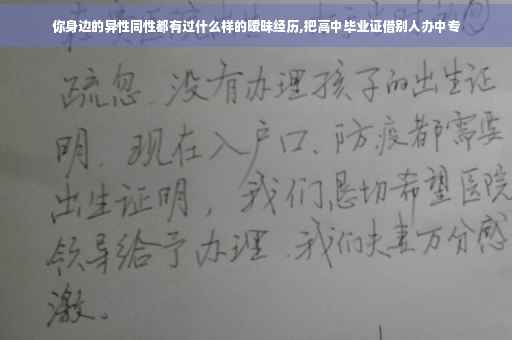 你身边的异性同性都有过什么样的暧昧经历,把高中毕业证借别人办中专
疏忽、没有办理孩子的出生证
明、现在入户口、防疫都需要
出生证明，我们恳切希望医院
领导给予办理、我们夫妻万分感
激。